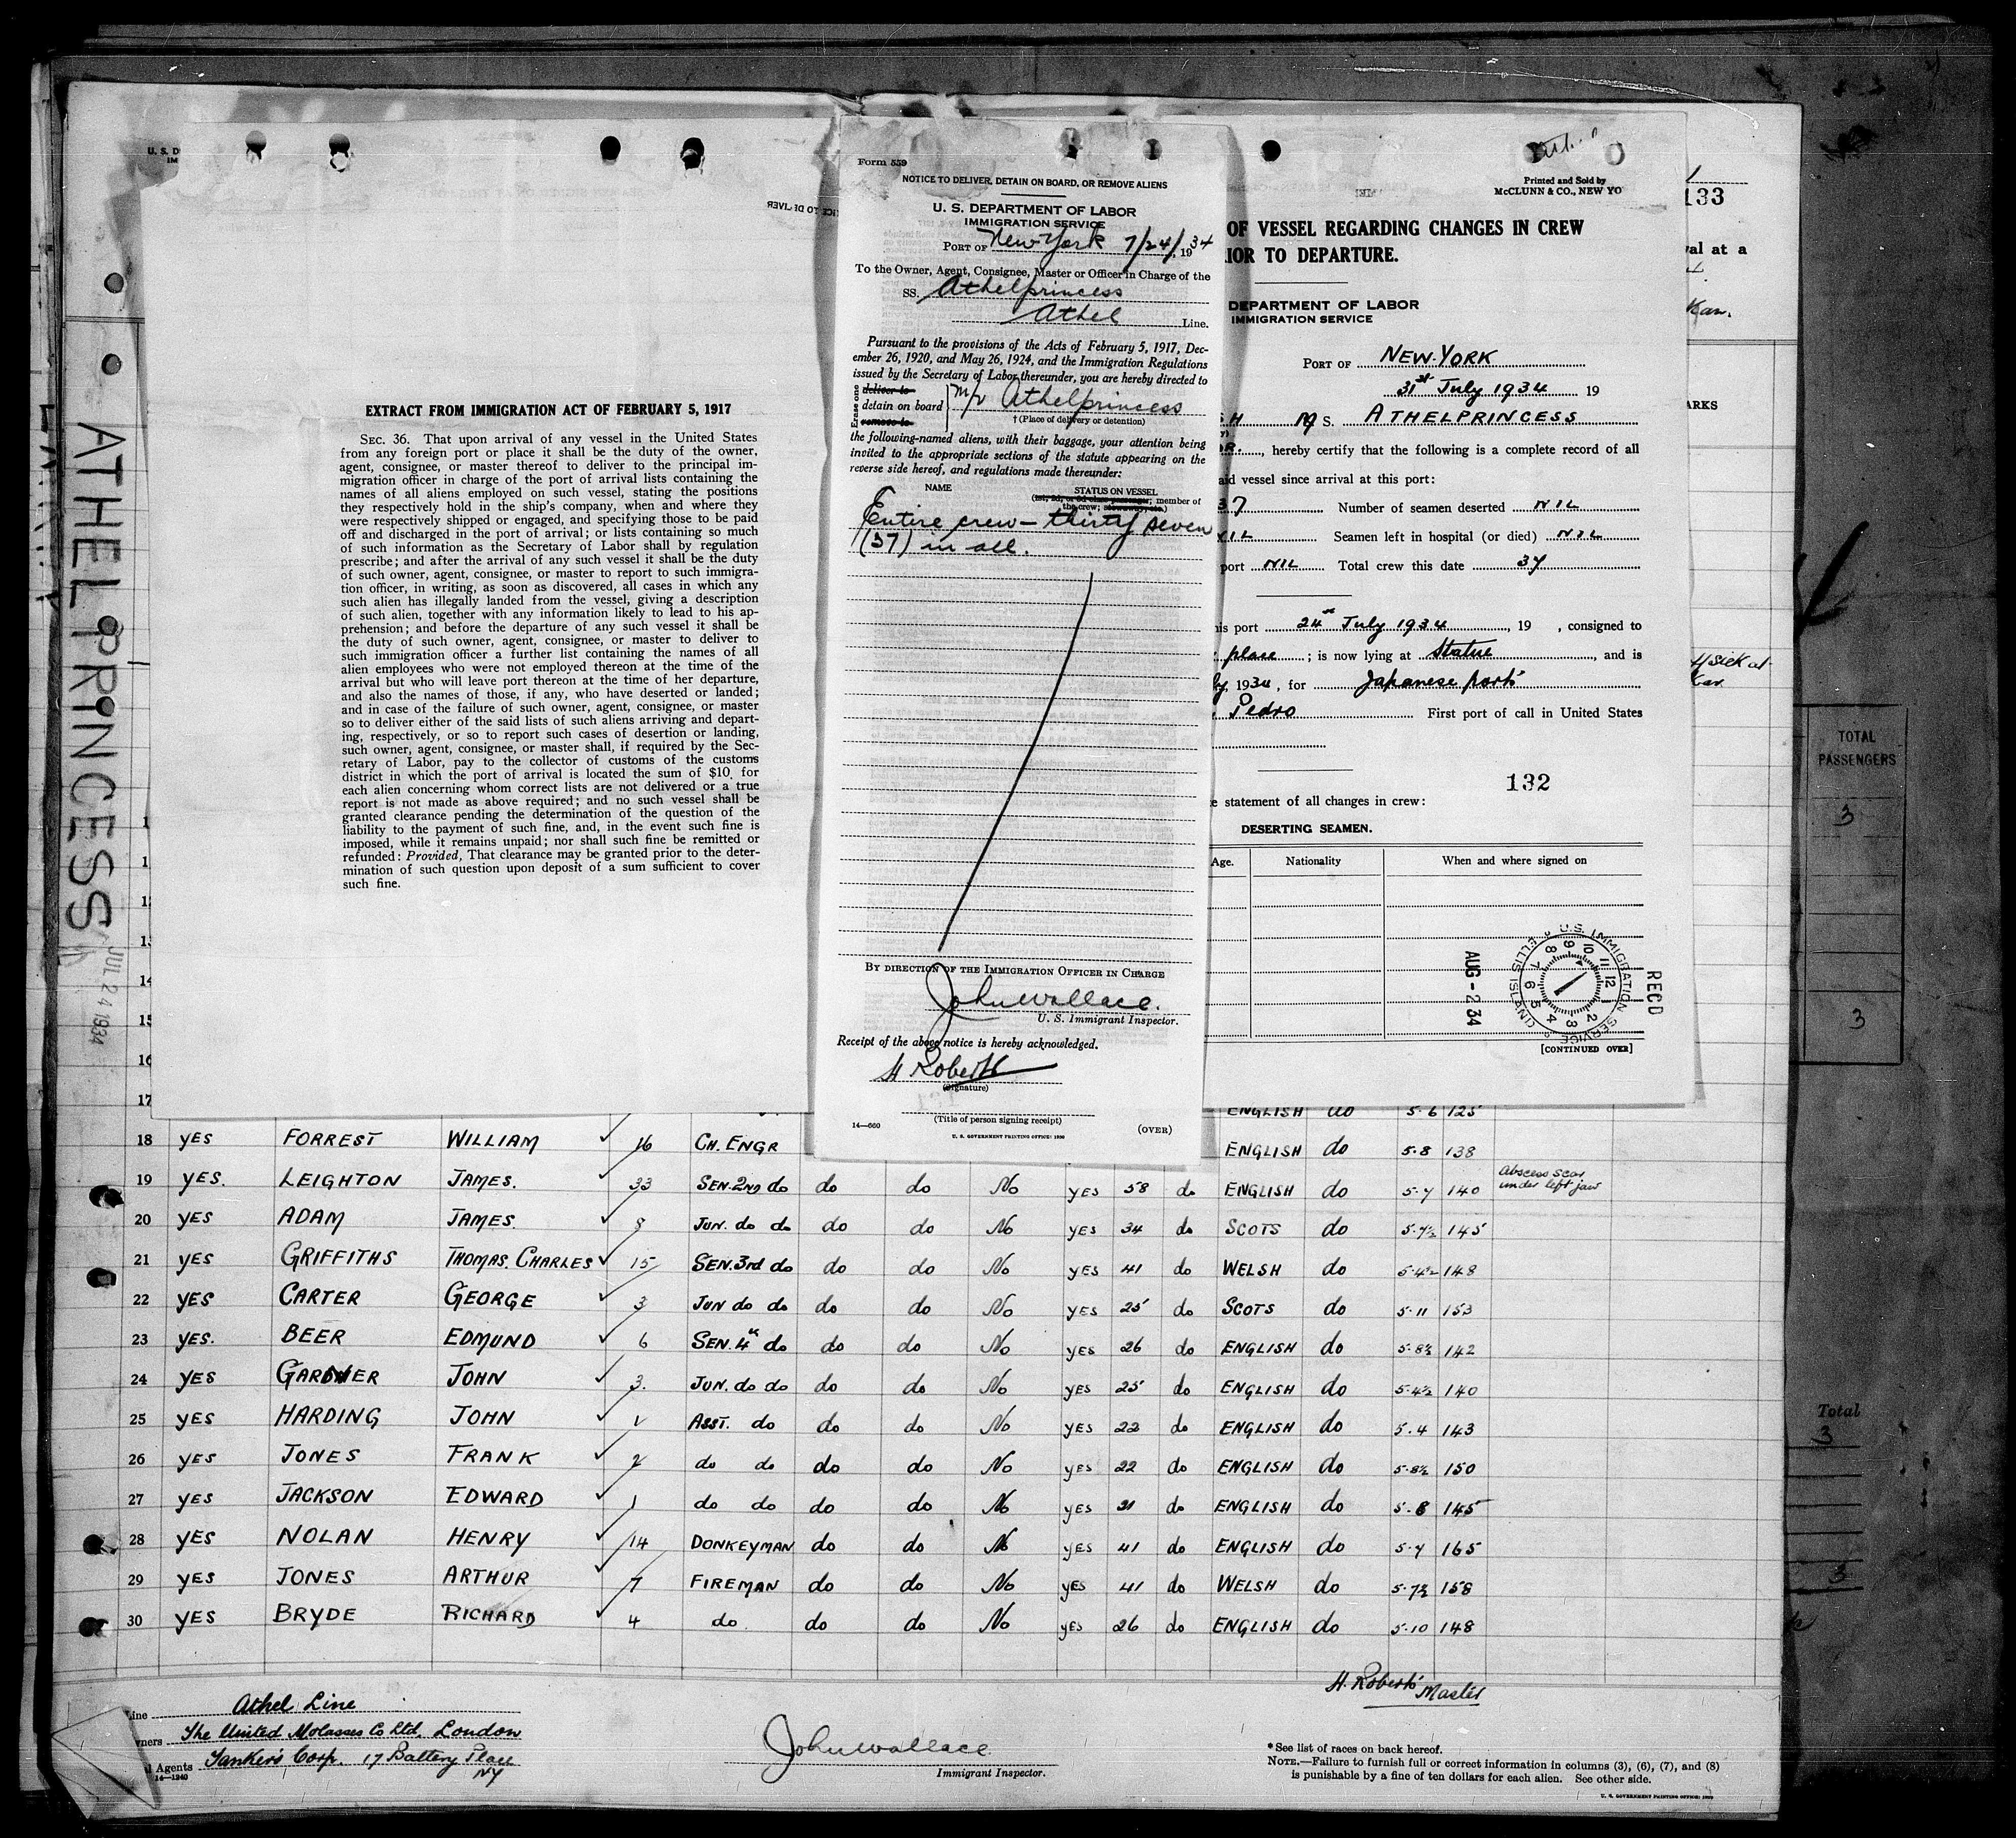 U. S. D
IM
EXTRACT FROM IMMIGRATION ACT OF FEBRUARY 5, 1917
SEC. 36. That upon arrival of any vessel in the United States
from any foreign port or place it shall be the duty of the owner,
agent, consignee, or master thereof to deliver to the principal im-
migration officer in charge of the port of arrival lists containing the
names of all aliens employed on such vessel, stating the positions
they respectively hold in the ship's company, when and where they
were respectively shipped or engaged, and specifying those to be paid
off and discharged in the port of arrival; or lists containing so much
of such information as the Secretary of Labor shall by regulation
prescribe; and after the arrival of any such vessel it shall be the duty
of such owner, agent, consignee, or master to report to such immigra-
tion officer, in writing, as soon as discovered, all cases in which any
such alien has illegally landed from the vessel, giving a description
of such alien, together with any information likely to lead to his ap-
prehension; and before the departure of any such vessel it shall be
the duty of such owner, agent, consignee, or master to deliver to
such immigration officer a further list containing the names of all
alien employees who were not employed thereon at the time of the
arrival but who will leave port thereon at the time of her departure,
and also the names of those, if any, who have deserted or landed;
and in case of the failure of such owner, agent, consignee, or master
so to deliver either of the said lists of such aliens arriving and depart-
ing, respectively, or so to report such cases of desertion or landing,
such owner, agent, consignee, or master shall, if required by the Sec-
retary of Labor, pay to the collector of customs of the customs
district in which the port of arrival is located the sum of $10 for
each alien concerning whom correct lists are not delivered or a true
report is not made as above required; and no such vessel shall be
granted clearance pending the determination of the question of the
liability to the payment of such fine, and, in the event such fine is
imposed, while it remains unpaid; nor shall such fine be remitted or
refunded: Provided, That clearance may be granted prior to the deter-
mination of such question upon deposit of a sum sufficient to cover
such fine.
ATHELPRINCESS
JUL 24 1934
Form 559
NOTICE TO DELIVER, DETAIN ON BOARD, OR REMOVE ALIENS
U. S. DEPARTMENT OF LABOR
IMMIGRATION SERVICE
PORT OF New York 7/24/, 1934
To the Owner, Agent, Consignee, Master or Officer in Charge of the
SS. Athelprincess
Athel Line.
Pursuant to the provisions of the Acts of February 5, 1917, Dec-
ember 26, 1920, and May 26, 1924, and the Immigration Regulations
issued by the Secretary of Labor thereunder, you are hereby directed to
Erase one
deliver to
detain on board M/V Athelprincess
remove to
† (Place of delivery or detention)
the following-named aliens, with their baggage, your attention being
invited to the appropriate sections of the statute appearing on the
reverse side hereof, and regulations made thereunder:
NAME STATUS ON VESSEL
(1st, 2d, or 3d class passenger; member of
the crew; stowaway, etc.)
Entire crew - thirty seven
(37) in all.
BY DIRECTION OF THE IMMIGRATION OFFICER IN CHARGE
John Wallace.
U. S. Immigrant Inspector.
Receipt of the above notice is hereby acknowledged.
H Roberts
(Signature)
(Title of person signing receipt)
14—660 (OVER)
U. S. GOVERNMENT PRINTING OFFICE: 1930
Printed and Sold by
McCLUNN & CO., NEW YO
OF VESSEL REGARDING CHANGES IN CREW
IOR TO DEPARTURE.
DEPARTMENT OF LABOR
IMMIGRATION SERVICE
PORT OF NEW-YORK
31st July 1934 19
SH M S. ATHELPRINCESS
, hereby certify that the following is a complete record of all
aid vessel since arrival at this port:
37 Number of seamen deserted NIL
NIL Seamen left in hospital (or died) NIL
port NIL Total crew this date 37
his port 24th July 1934, 19 , consigned to
place ; is now lying at Statue , and is
ly, 1934, for Japanese ports
Pedro First port of call in United States
132
e statement of all changes in crew:
DESERTING SEAMEN.
Age. Nationality When and where signed on
RECD
U.S. IMMIGRATION SERVICE ELLIS ISLAND
AUG -2 34
[CONTINUED OVER]
133
val at a
Kan.
ARKS
TOTAL
PASSENGERS
3
3
Total
3
3
13
14
15
16
17 ENGLISH do 5-6 125
18 YES FORREST WILLIAM 16 CH. ENGR ENGLISH do 5-8 138
19 YES. LEIGHTON JAMES. 33 SEN. 2ND do do do No YES 58 do ENGLISH do 5-7 140 Abscess scar under left jaw
20 YES ADAM JAMES. 8 JUN. do do do do No YES 34 do SCOTS do 5-7½ 145
21 YES GRIFFITHS THOMAS. CHARLES 15 SEN. 3rd do do do No YES 41 do WELSH do 5-4½ 148
22 YES CARTER GEORGE 3 JUN do do do do No YES 25 do SCOTS do 5-11 153
23 YES. BEER EDMUND 6 SEN. 4th do do do No YES 26 do ENGLISH do 5-8½ 142
24 YES GARDNER JOHN 3. JUN. do do do do No YES 25 do ENGLISH do 5-4½ 140
25 YES HARDING JOHN 1 ASST. do do do No YES 22 do ENGLISH do 5-4 143
26 YES JONES FRANK 2 do do do do No YES 22 do ENGLISH do 5-8½ 150
27 YES JACKSON EDWARD 1 do do do do No YES 21 do ENGLISH do 5-8 145
28 YES NOLAN HENRY 14 DONKEYMAN do do No YES 41 do ENGLISH do 5-7 165
29 YES JONES ARTHUR 7 FIREMAN do do No YES 41 do WELSH do 5-7½ 158
30 YES BRYDE RICHARD 4 do do do No YES 26 do ENGLISH do 5-10 148
H. Roberts Master
Line Athel Line
wners The United Molasses Co Ltd, London
l Agents Tankers Corp. 17 Battery Place
NY
14—1240
John Wallace
Immigrant Inspector.
*See list of races on back hereof.
NOTE.—Failure to furnish full or correct information in columns (3), (6), (7), and (8)
is punishable by a fine of ten dollars for each alien. See other side.
U. S. GOVERNMENT PRINTING OFFICE: 1929